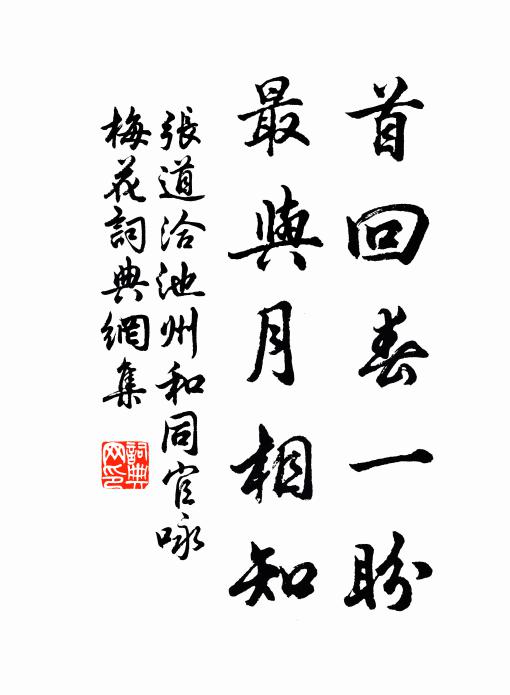 首回春一盼
最與月相知
張道洽池州和同官咏
梅花詞典網集
詞典
网印